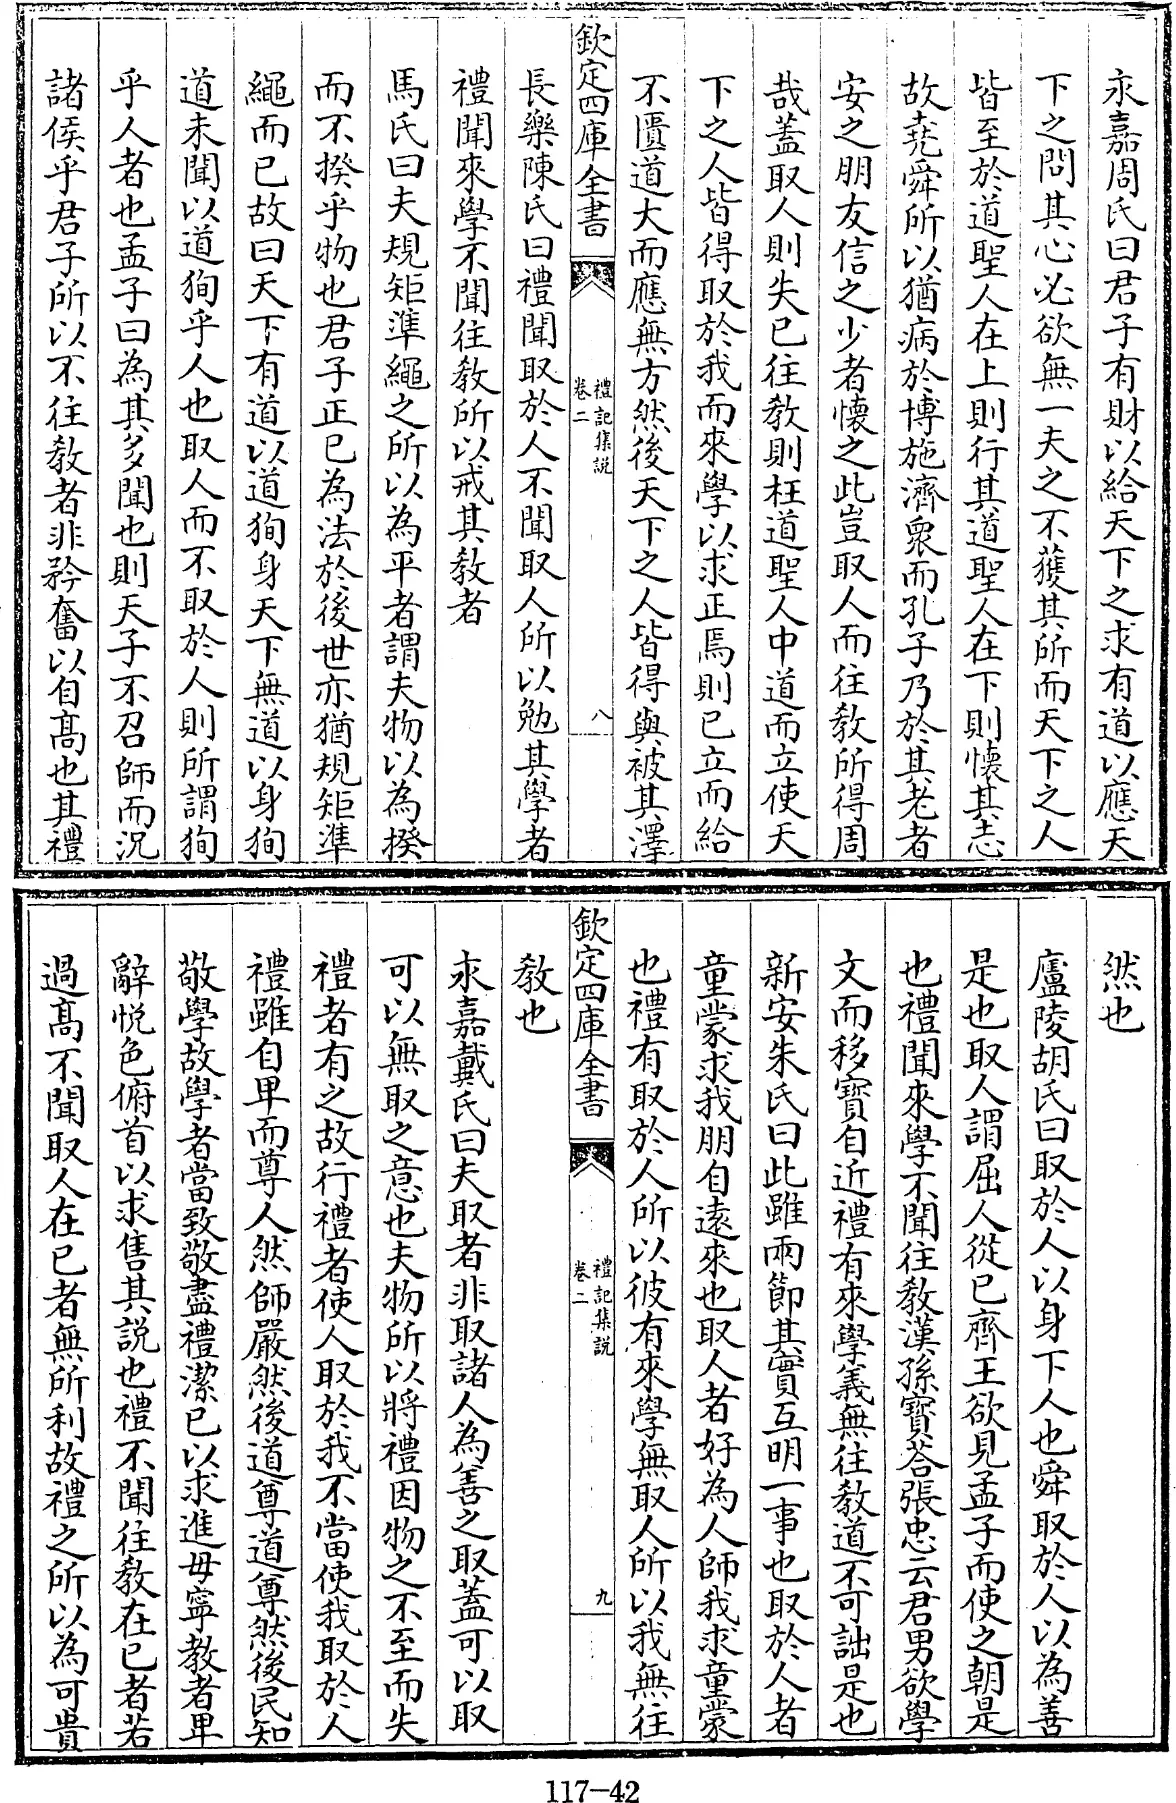 永嘉周氏曰君子有財以給天下之求有道以應天
下之問其心必欲無一夫之不獲其所而天下之人
皆至於道聖人在上則行其道聖人在下則懷其志
故堯舜所以猶病於博施濟衆而孔子乃於其老者
安之朋友信之少者懷之此豈取人而往教所得周
哉蓋取人則失已往教則枉道聖人中道而立使天
下之人皆得取於我而來學以求正焉則已立而給
不匱道大而應無方然後天下之人皆得與被其澤
欽定四庫全書
禮記集説
卷二
八
長樂陳氏曰禮聞取於人不聞取人所以勉其學者
禮聞來學不聞往教所以戒其教者
馬氏曰夫規矩準繩之所以為平者謂夫物以為揆
而不揆乎物也君子正已為法於後世亦猶規矩準
繩而已故曰天下有道以道狥身天下無道以身狥
道未聞以道狥乎人也取人而不取於人則所謂狥
乎人者也孟子曰為其多聞也則天子不召師而況
諸侯乎君子所以不往教者非矜奮以自髙也其禮
然也
廬陵胡氏曰取於人以身下人也舜取於人以為善
是也取人謂屈人從已齊王欲見孟子而使之朝是
也禮聞來學不聞往教漢孫寳荅張忠云君男欲學
文而移寳自近禮有來學義無往教道不可詘是也
新安朱氏曰此雖兩節其實互明一事也取於人者
童蒙求我朋自逺來也取人者好為人師我求童蒙
也禮有取於人所以彼有來學無取人所以我無往
欽定四庫全書
禮記集説
卷二
九
教也
永嘉戴氏曰夫取者非取諸人為善之取蓋可以取
可以無取之意也夫物所以將禮因物之不至而失
禮者有之故行禮者使人取於我不當使我取於人
禮雖自卑而尊人然師嚴然後道尊道尊然後民知
敬學故學者當致敬盡禮潔已以求進毋寧教者卑
辭悦色俯首以求售其説也禮不聞往教在已者若
過髙不聞取人在已者無所利故禮之所以為可貴
117-42